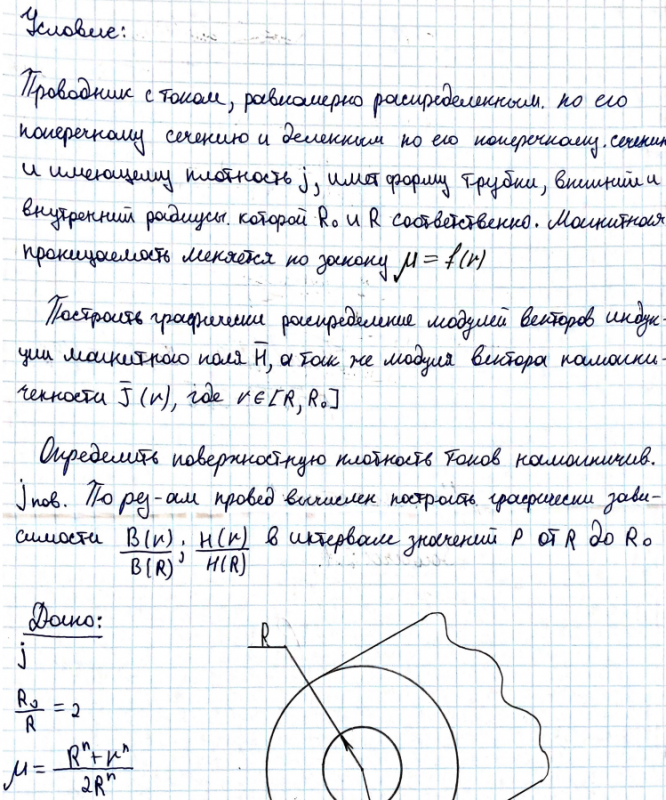 Условие:
Проводник с током, равномерно распределенным. по его
поперечному сечению и деленным по его поперечному. сечению
и имеющему плотность j, имет форму трубки, внешний и
внутренний радиусы. которой R₀ и R соответственно. Магнитная
проницаемость меняется по закону μ = f(r)
Построить графически распределение модулей векторов индук-
ции магнитного поля H̄, а так же модуля вектора намагни-
ченности J̄(r), где r∈[R, R₀]
Определить поверхностную плотность токов намагничив.
jпов. По рез-ам провед вычислен построить графически зави-
симости B(r)/B(R); H(r)/H(R) в интервале значений r от R до R₀
Дано:
j
R₀/R = 2
μ = (Rⁿ+rⁿ)/2Rⁿ
R